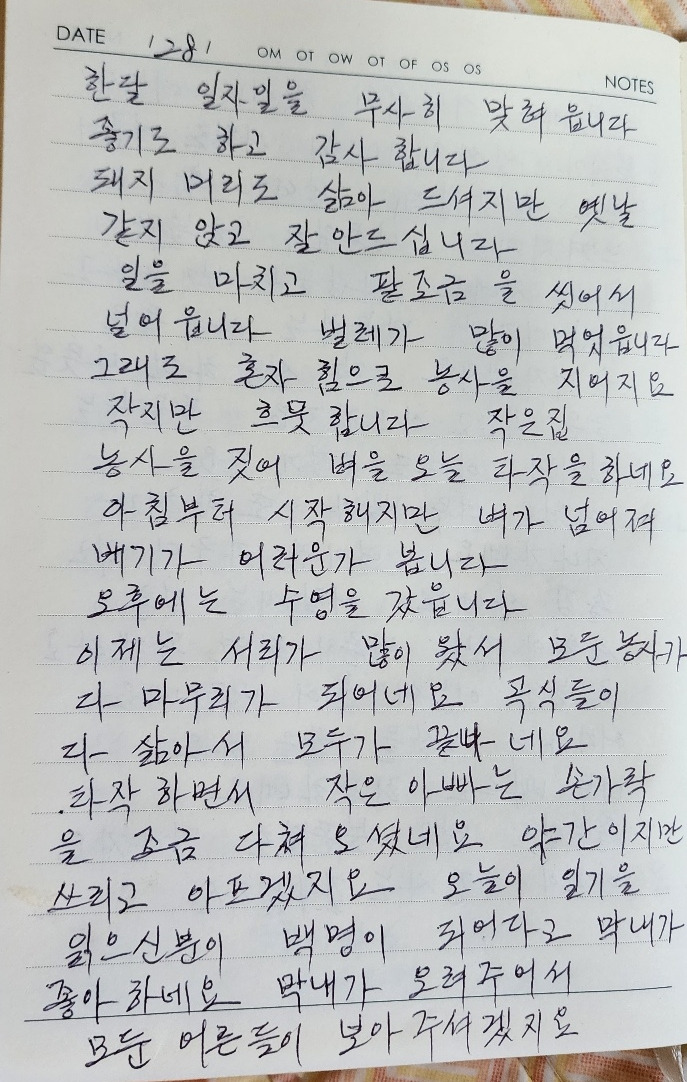 DATE 1281 OM OT OW OT OF OS OS NOTES
한달 일자일을 무사히 맞혀 읍니다
좋기도 하고 감사 합니다
돼지 머리도 삶아 드셔지만 옛날
같지 않고 잘 안드십니다
일을 마치고 팥조금을 씻어서
널어 읍니다 벌레가 많이 먹었읍니다
그래도 혼자 힘으로 농사을 지어지요
작지만 흐뭇합니다 작은집
농사을 짓어 벼을 오늘 타작을 하네요
아침부터 시작 해지만 벼가 넘어져
베기가 어려운가 봅니다
오후에는 수영을 갔읍니다
이제는 서리가 많이 왔서 모둔 농사가
다 마무리가 되어네요 곡식들이
다 삶아서 모두가 네요
.타작 하면서 작은 아빠는 손가락
을 조금 다쳐 오셨네요 약간이지만
쓰리고 아프겠지요 오늘이 일기을
읽으신분이 백명이 되어다고 막내가
좋아 하네요 막내가 오려주어서
모둔 어른들이 보아 주셔겠지요